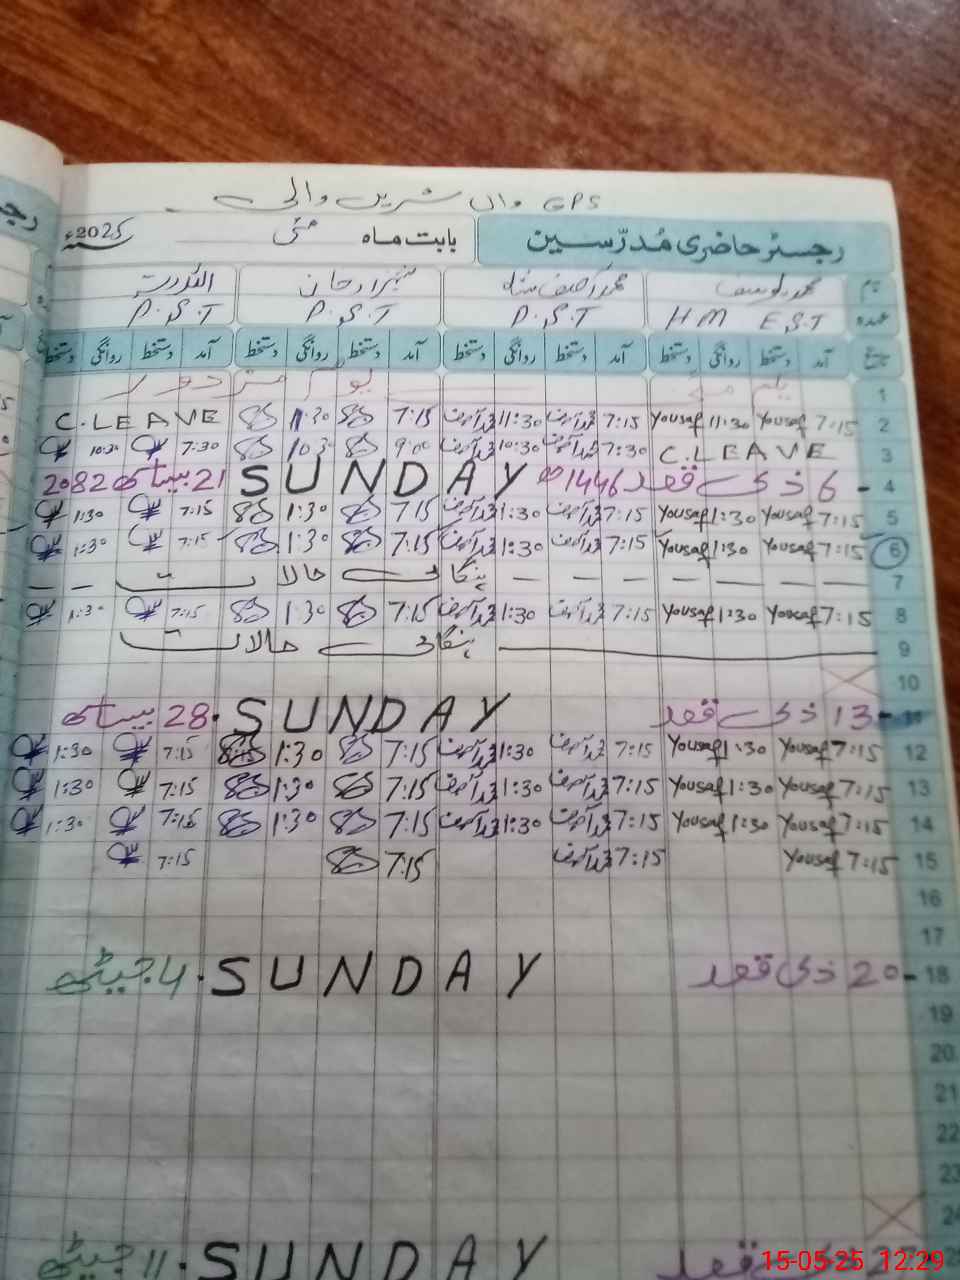 GPS واں شریں والی
رجسٹر حاضری مُدرّسین بابت ماہ مئی سنہ 2025ء
نام محمد یوسف محمد آصف شاہ
عہدہ HM E.S.T P.S.T P.S.T P.S.T
تاریخ آمد دستخط روانگی دستخط آمد دستخط روانگی دستخط آمد دستخط روانگی دستخط آمد دستخط روانگی دستخط
1 یکم مئی یوم مزدور
2 7:15 Yousaf 11:30 Yousaf 7:15 محمد آصف 11:30 محمد آصف 7:15 11:30 C.LEAVE
3 C.LEAVE 7:30 محمد آصف 10:30 محمد آصف 9:00 10:30 7:30 10:30
4 - 6 ذی قعد 1446ھ SUNDAY 21 بیساکھ 2082
5 7:15 Yousaf 1:30 Yousaf 7:15 محمد آصف 1:30 محمد آصف 7:15 1:30 7:15 1:30
6 7:15 Yousaf 1:30 Yousaf 7:15 محمد آصف 1:30 محمد آصف 7:15 1:30 7:15 1:30
7 — — — — — — — ہنگامی حالات — —
8 7:15 Yousaf 1:30 Yousaf 7:15 محمد آصف 1:30 محمد آصف 7:15 1:30 7:15 1:30
9 ہنگامی حالات
10
11 - 13 ذی قعد SUNDAY . 28 بیساکھ
12 7:15 Yousaf 1:30 Yousaf 7:15 محمد آصف 1:30 محمد آصف 7:15 1:30 7:15 1:30
13 7:15 Yousaf 1:30 Yousaf 7:15 محمد آصف 1:30 محمد آصف 7:15 1:30 7:15 1:30
14 7:15 Yousaf 1:30 Yousaf 7:15 محمد آصف 1:30 محمد آصف 7:15 1:30 7:15 1:30
15 7:15 Yousaf 7:15 محمد آصف 7:15 7:15
16
17
18 - 20 ذی قعد SUNDAY . 4 جیٹھ
19
20
21
22
23
24
ذی قعد SUNDAY . 11 جیٹھ
15-05-25 12:29